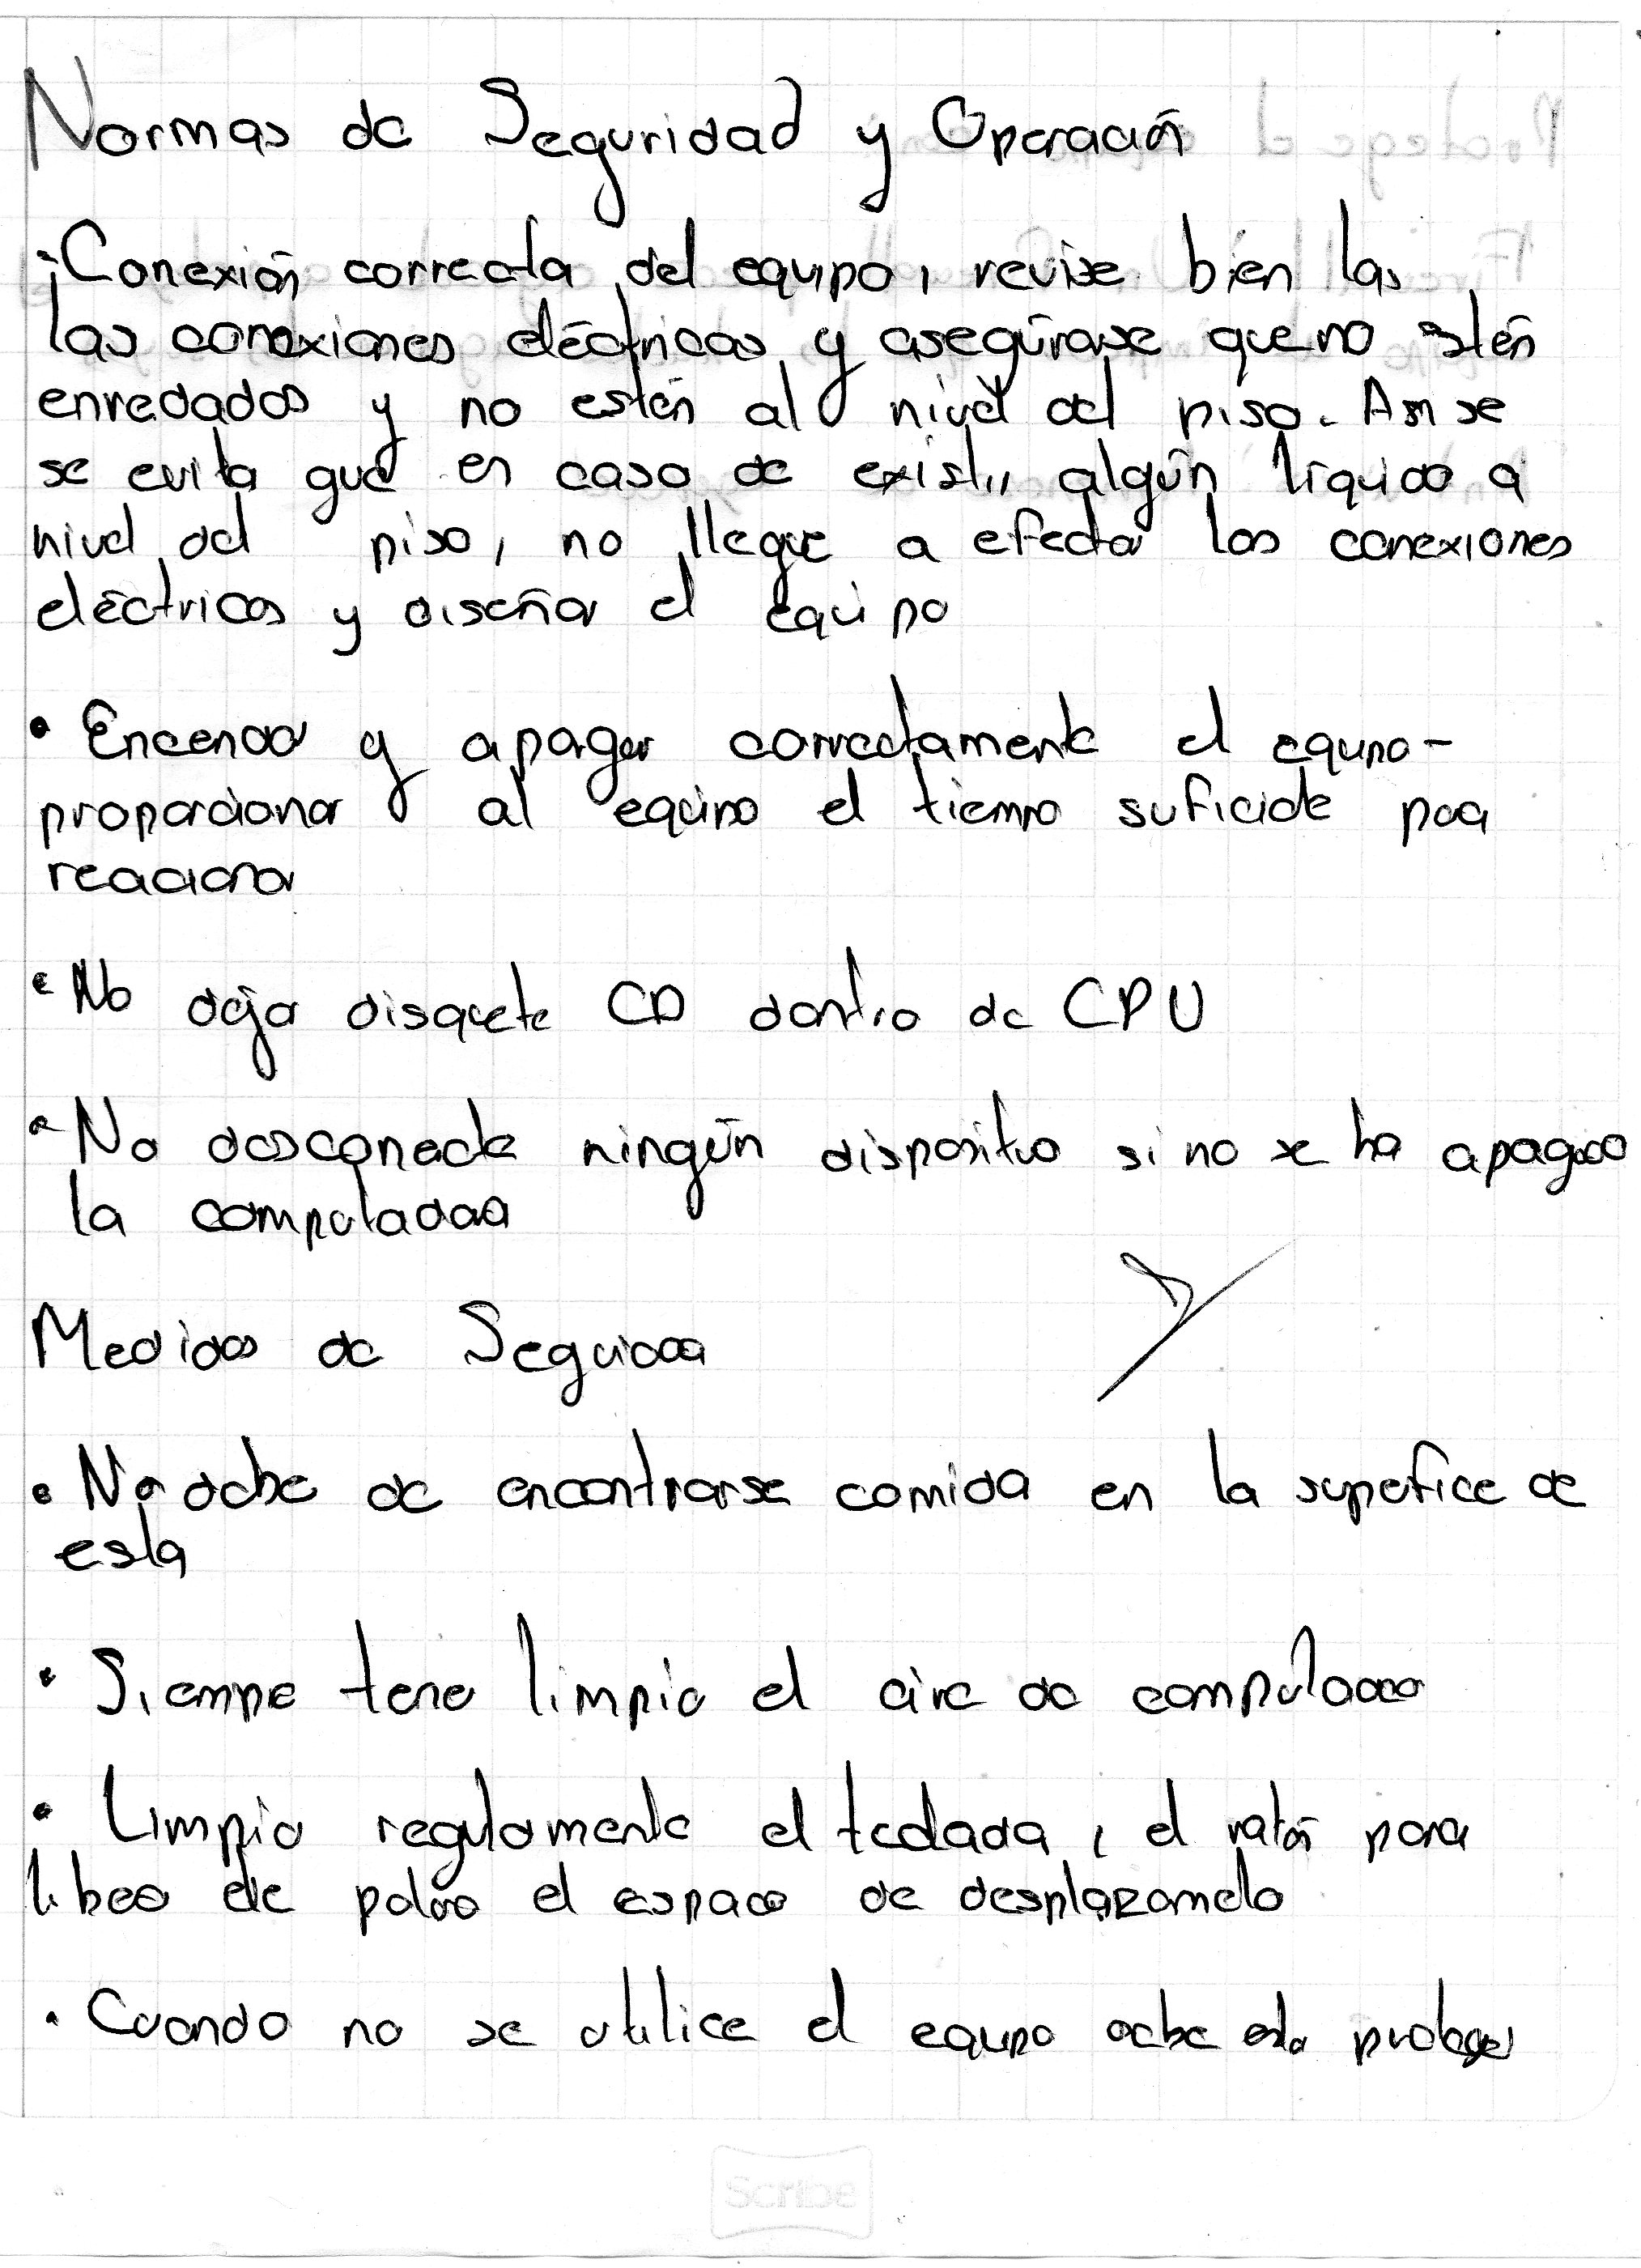 Normas de Seguridad y Operación
• Conexión correcta del equipo, revise bien las
las conexiones eléctricas y asegúrarse que no stén
enredados y no estén al nivel del piso. Asi se
se evita que en caso de existir algún líquido a
nivel del piso, no llegue a efectar las conexiones
eléctricas y diseñar el equipo
• Encender y apagar correctamente el equipo -
proporcionar al equipo el tiempo suficiete para
reaccionar
• No dejar disquete CD dentro de CPU
• No desconecte ningún dispositivo si no se ha apagado
la computadora
Medidas de Seguridad
• No debe de encontrarse comida en la superfice de
esta
• Siempre tener limpio el aire de computadora
• Limpio regularmente el teclada, el ratón para
libeo de polvo el espacio de desplazameto
• Cuando no se utilice el equipo debe esta proteger
Scribe